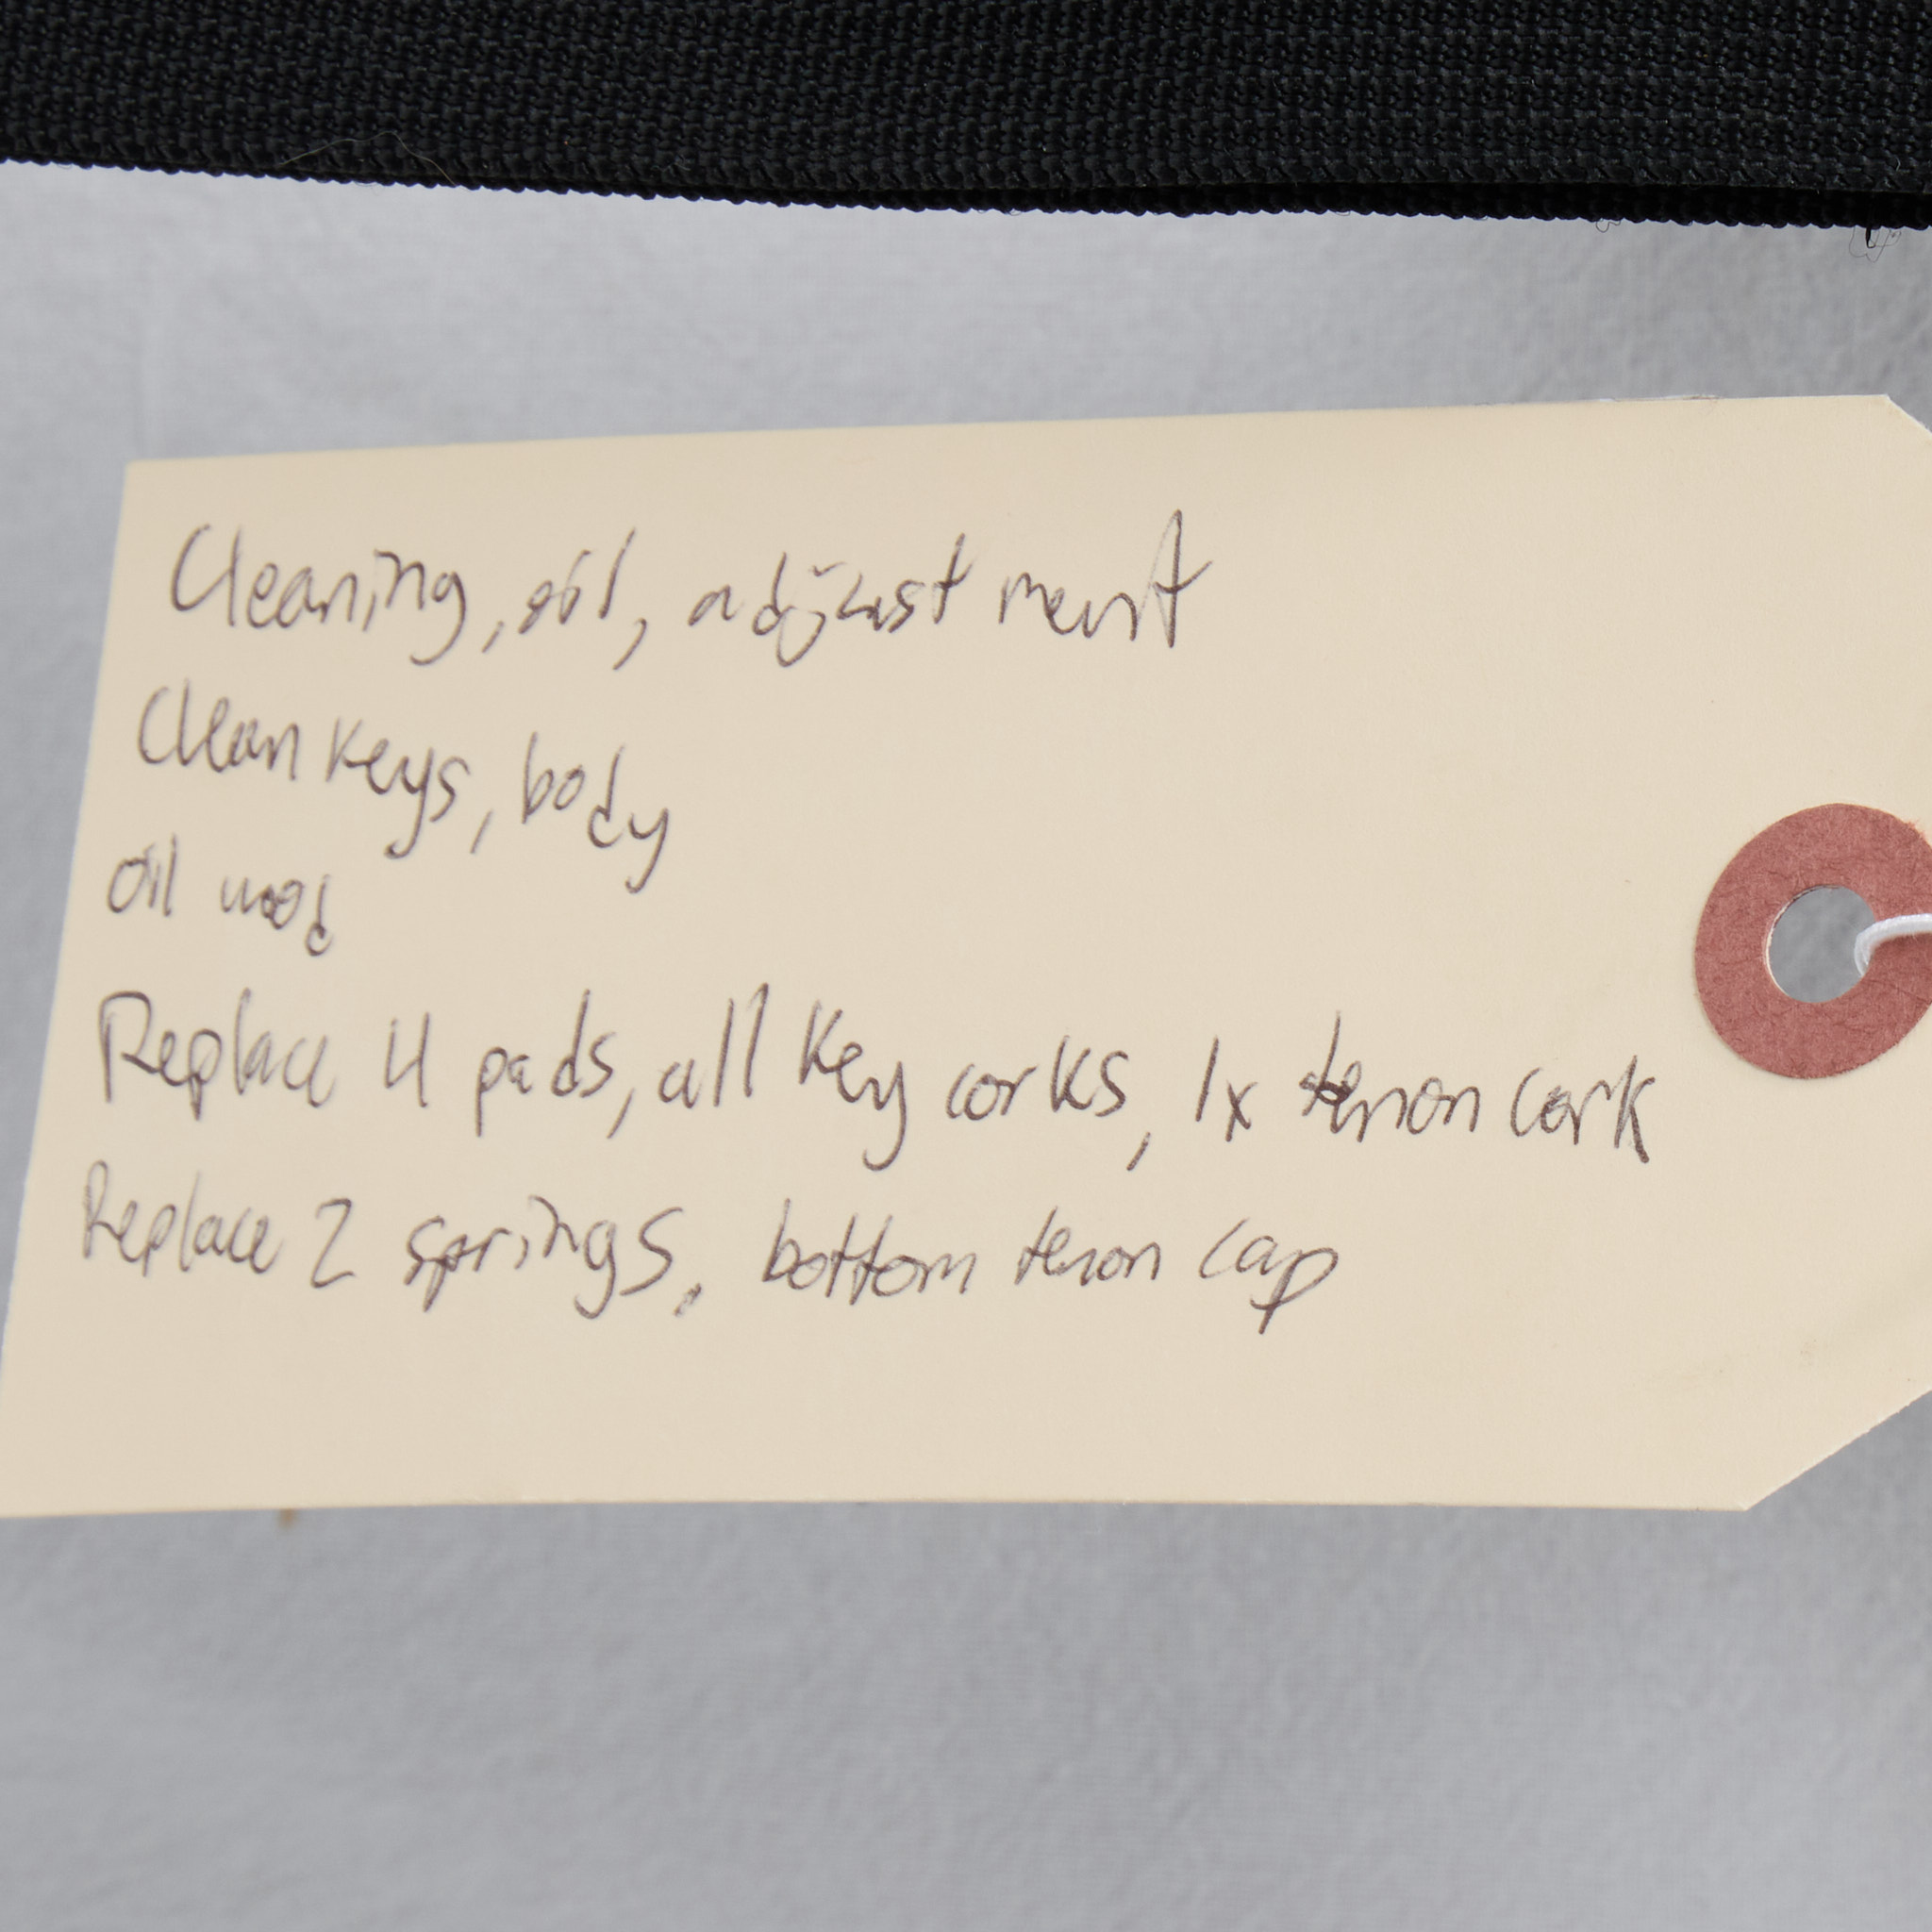 Cleaning, oil, adjustment
Clean keys, body
Oil wood
Replace 4 pads, all key corks, 1x tenon cork
Replace 2 springs, bottom tenon cap